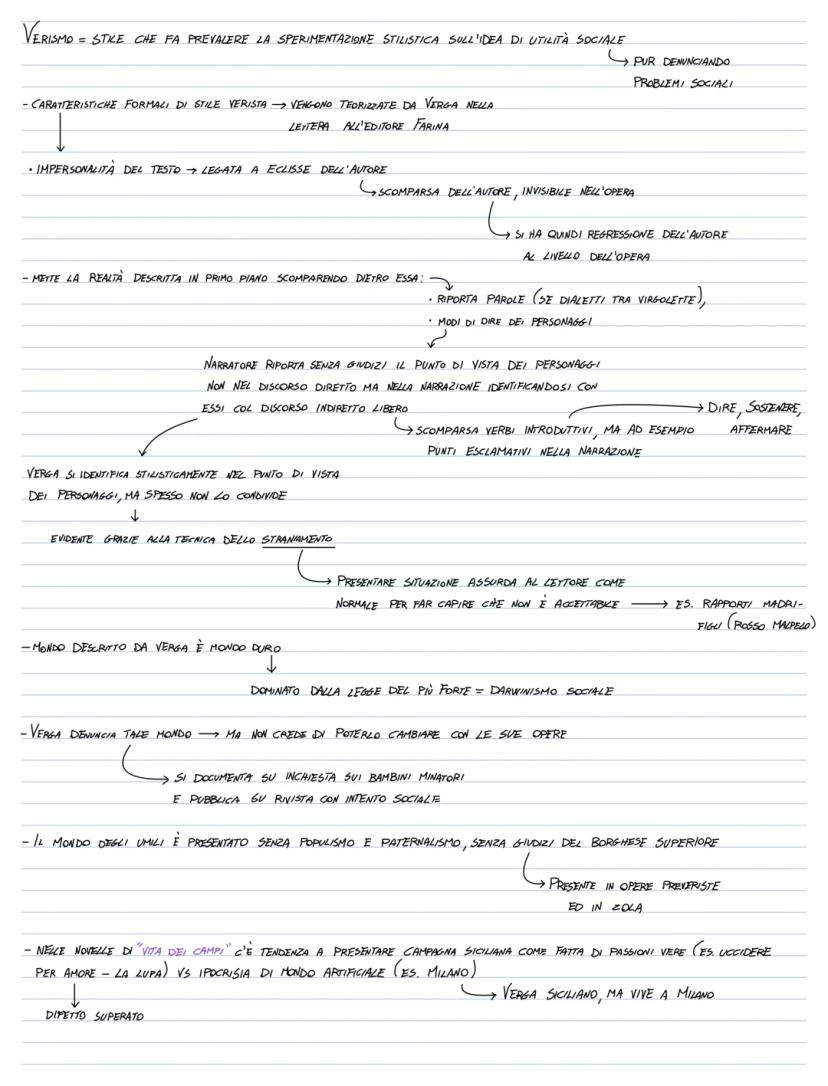 VERISMO = STILE CHE FA PREVALERE LA SPERIMENTAZIONE STILISTICA SULL'IDEA DI UTILITÀ SOCIALE
→ PUR DENUNCIANDO
PROBLEMI SOCIALI
- CARATTERISTICHE FORMALI DI STILE VERISTA → VENGONO TEORIZZATE DA VERGA NELLA
LETTERA ALL'EDITORE FARINA
• IMPERSONALITÀ DEL TESTO → LEGATA A ECLISSE DELL'AUTORE
→ SCOMPARSA DELL'AUTORE, INVISIBILE NELL'OPERA
→ SI HA QUINDI REGRESSIONE DELL'AUTORE
AL LIVELLO DELL'OPERA
- METTE LA REALTÀ DESCRITTA IN PRIMO PIANO SCOMPARENDO DIETRO ESSA:
• RIPORTA PAROLE (SE DIALETTI TRA VIRGOLETTE),
• MODI DI DIRE DEI PERSONAGGI
NARRATORE RIPORTA SENZA GIUDIZI IL PUNTO DI VISTA DEI PERSONAGGI
NON NEL DISCORSO DIRETTO MA NELLA NARRAZIONE IDENTIFICANDOSI CON
ESSI COL DISCORSO INDIRETTO LIBERO → DIRE, SOSTENERE,
→ SCOMPARSA VERBI INTRODUTTIVI, MA AD ESEMPIO AFFERMARE
PUNTI ESCLAMATIVI NELLA NARRAZIONE
VERGA SI IDENTIFICA STILISTICAMENTE NEL PUNTO DI VISTA
DEI PERSONAGGI, MA SPESSO NON LO CONDIVIDE
↓
EVIDENTE GRAZIE ALLA TECNICA DELLO STRANIAMENTO
→ PRESENTARE SITUAZIONE ASSURDA AL LETTORE COME
NORMALE PER FAR CAPIRE CHE NON È ACCETTABILE → ES. RAPPORTI MADRI-
FIGLI (ROSSO MALPELO)
- MONDO DESCRITTO DA VERGA È MONDO DURO
↓
DOMINATO DALLA LEGGE DEL PIÙ FORTE = DARWINISMO SOCIALE
- VERGA DENUNCIA TALE MONDO → MA NON CREDE DI POTERLO CAMBIARE CON LE SUE OPERE
→ SI DOCUMENTA SU INCHIESTA SUI BAMBINI MINATORI
E PUBBLICA SU RIVISTA CON INTENTO SOCIALE
- IL MONDO DEGLI UMILI È PRESENTATO SENZA POPULISMO E PATERNALISMO, SENZA GIUDIZI DEL BORGHESE SUPERIORE
→ PRESENTE IN OPERE PREVERISTE
ED IN ZOLA
- NELLE NOVELLE DI "VITA DEI CAMPI" C'È TENDENZA A PRESENTARE CAMPAGNA SICILIANA COME FATTA DI PASSIONI VERE (ES. UCCIDERE
PER AMORE - LA LUPA) VS IPOCRISIA DI MONDO ARTIFICIALE (ES. MILANO)
→ VERGA SICILIANO, MA VIVE A MILANO
DIFETTO SUPERATO